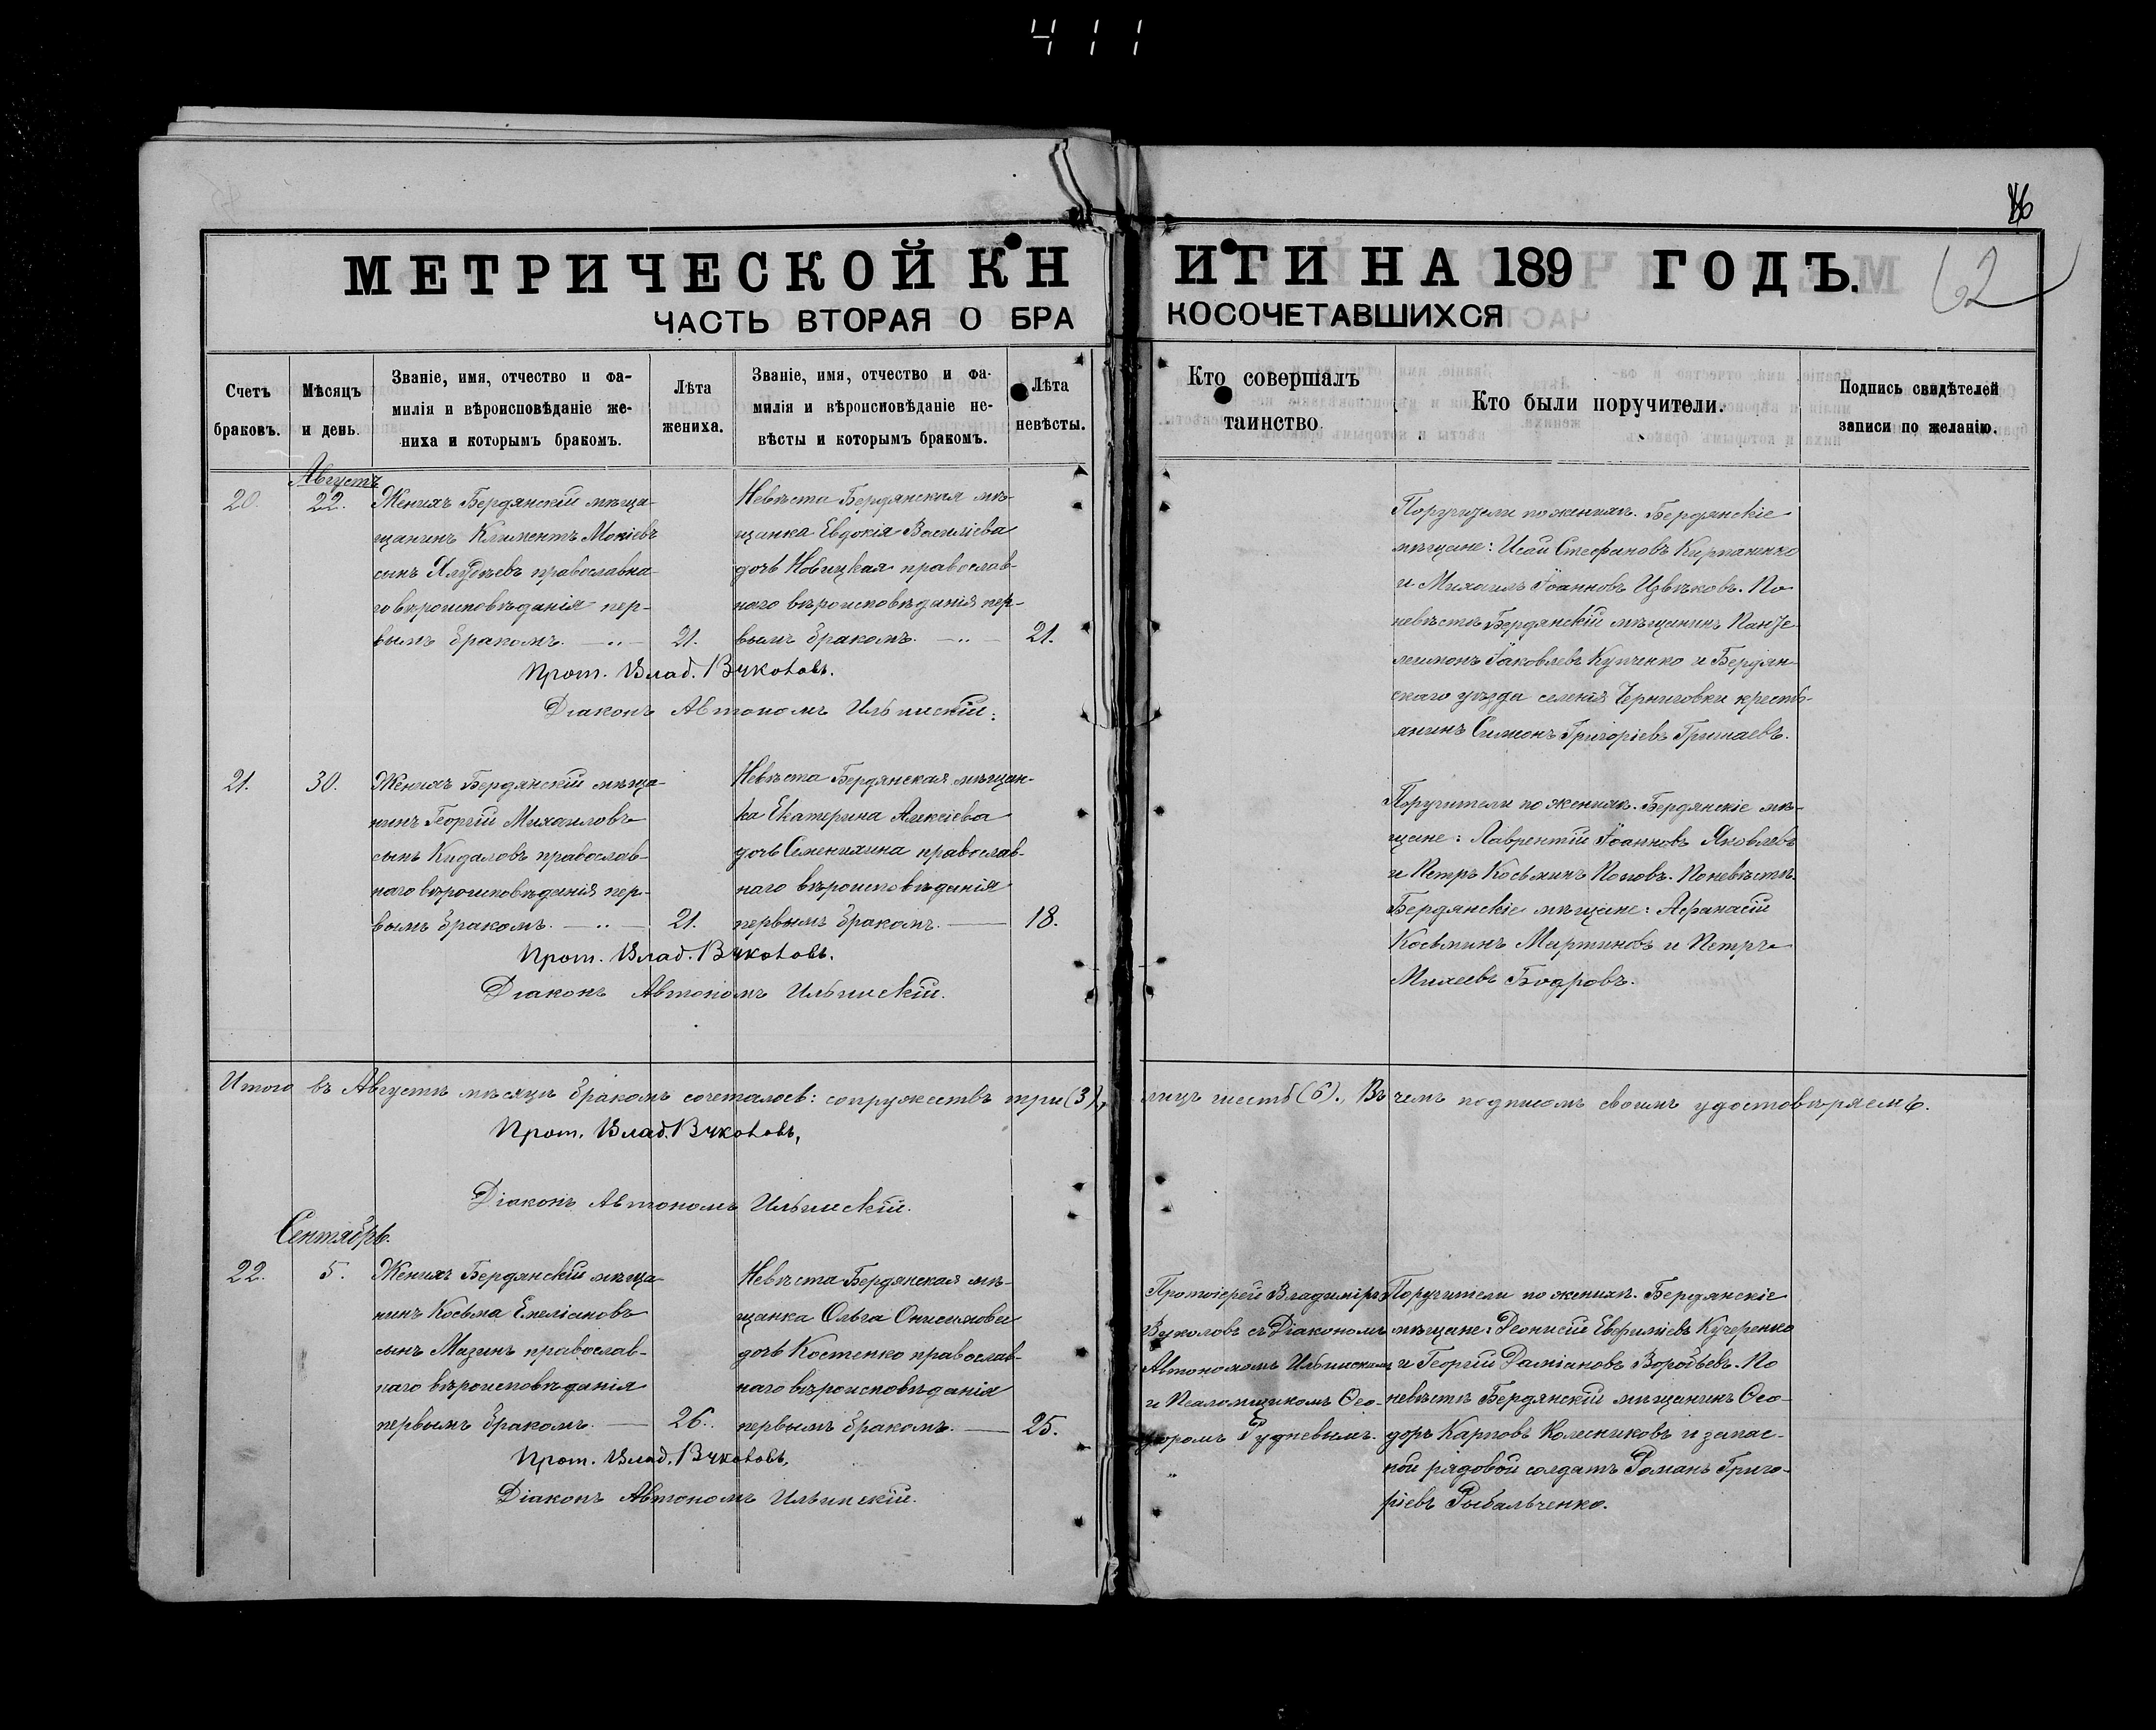 411
86
62
МЕТРИЧЕСКОЙ КНИГИ НА 189 ГОДЪ.
ЧАСТЬ ВТОРАЯ О БРАКОСОЧЕТАВШИХСЯ
Счетъ браковъ.
Мѣсяцъ и день.
Званіе, имя, отчество и фа-
милія и вѣроисповѣданіе же-
ниха и которымъ бракомъ.
Лѣта жениха.
Званіе, имя, отчество и фа-
милія и вѣроисповѣданіе не-
вѣсты и которымъ бракомъ.
Лѣта невѣсты.
Кто совершалъ таинство
Кто были поручители.
Подпись свидѣтелей
записи по желанію.
Августъ
20. 22.
Женихъ Бердянскій мѣща-
щанинъ Климентъ Мокіевъ
сынъ православна-
го вѣроисповѣданія пер-
вымъ бракомъ. 21.
Невѣста Бердянская мѣ-
щанка Евдокія Василіева
дочь Новицкая православ-
наго вѣроисповѣданія пер-
вымъ бракомъ. 21.
Поручители по женихѣ. Бердянскіе
мѣщане: Исай Стефановъ Кирпаненко
и Михаилъ Іоанновъ Цвѣтковъ. По
невѣстѣ Бердянскій мѣщанинъ Панте-
леимонъ Іаковлевъ Купченко и Бердян-
скаго уѣзда селенія Черниговки кресть-
янинъ Симонъ Григоріевъ
Прот. Влад. Вуколовъ.
Діаконъ Автономъ Ильинскій.
21. 30.
Женихъ Бердянскій мѣща-
нинъ Георгій Михаиловъ
сынъ Кидаловъ православ-
наго вѣроисповѣданія пер-
вымъ бракомъ. 21.
Невѣста Бердянская мѣщан-
ка Екатерина Алексіева
дочь Семенихина православ-
наго вѣроисповѣданія
первымъ бракомъ. 18.
Поручители по женихѣ. Бердянскіе мѣ-
щане: Лаврентій Іоанновъ Яковлевъ
и Петръ Косьминъ Поповъ. По невѣстѣ.
Бердянскіе мѣщане: Афанасій
Косьминъ Мартиновъ и Петръ
Михеевъ
Прот. Влад. Вуколовъ.
Діаконъ Автономъ Ильинскій.
Итого въ Августѣ мѣсяцѣ бракомъ сочеталось: супружествъ три (3), лицъ шесть (6). Въ чемъ подписомъ своимъ удостовѣряемъ.
Прот. Влад. Вуколовъ,
Діаконъ Автономъ Ильинскій.
Сентябрь.
22. 5.
Женихъ Бердянскій мѣща-
нинъ Косьма Емеліановъ
сынъ Мазинъ православ-
наго вѣроисповѣданія
первымъ бракомъ. 26.
Невѣста Бердянская мѣ-
щанка Ольга Онисимова
дочь Костенко православ-
наго вѣроисповѣданія
первымъ бракомъ. 25.
Протоіерей Владиміръ
Вуколовъ съ Діакономъ
Автономомъ Ильинскимъ
и Псаломщикомъ Ѳео-
доромъ Рудневымъ.
Поручители по женихѣ. Бердянскіе
мѣщане: Діонисій Евфиміевъ Кучеренко
и Георгій Даміановъ Воробьевъ. По
невѣстѣ Бердянскій мѣщанинъ Ѳео-
доръ Карповъ Колесниковъ и запас-
ной рядовой солдатъ Романъ Григо-
ріевъ Рыбальченко.
Прот. Влад. Вуколовъ,
Діаконъ Автономъ Ильинскій.